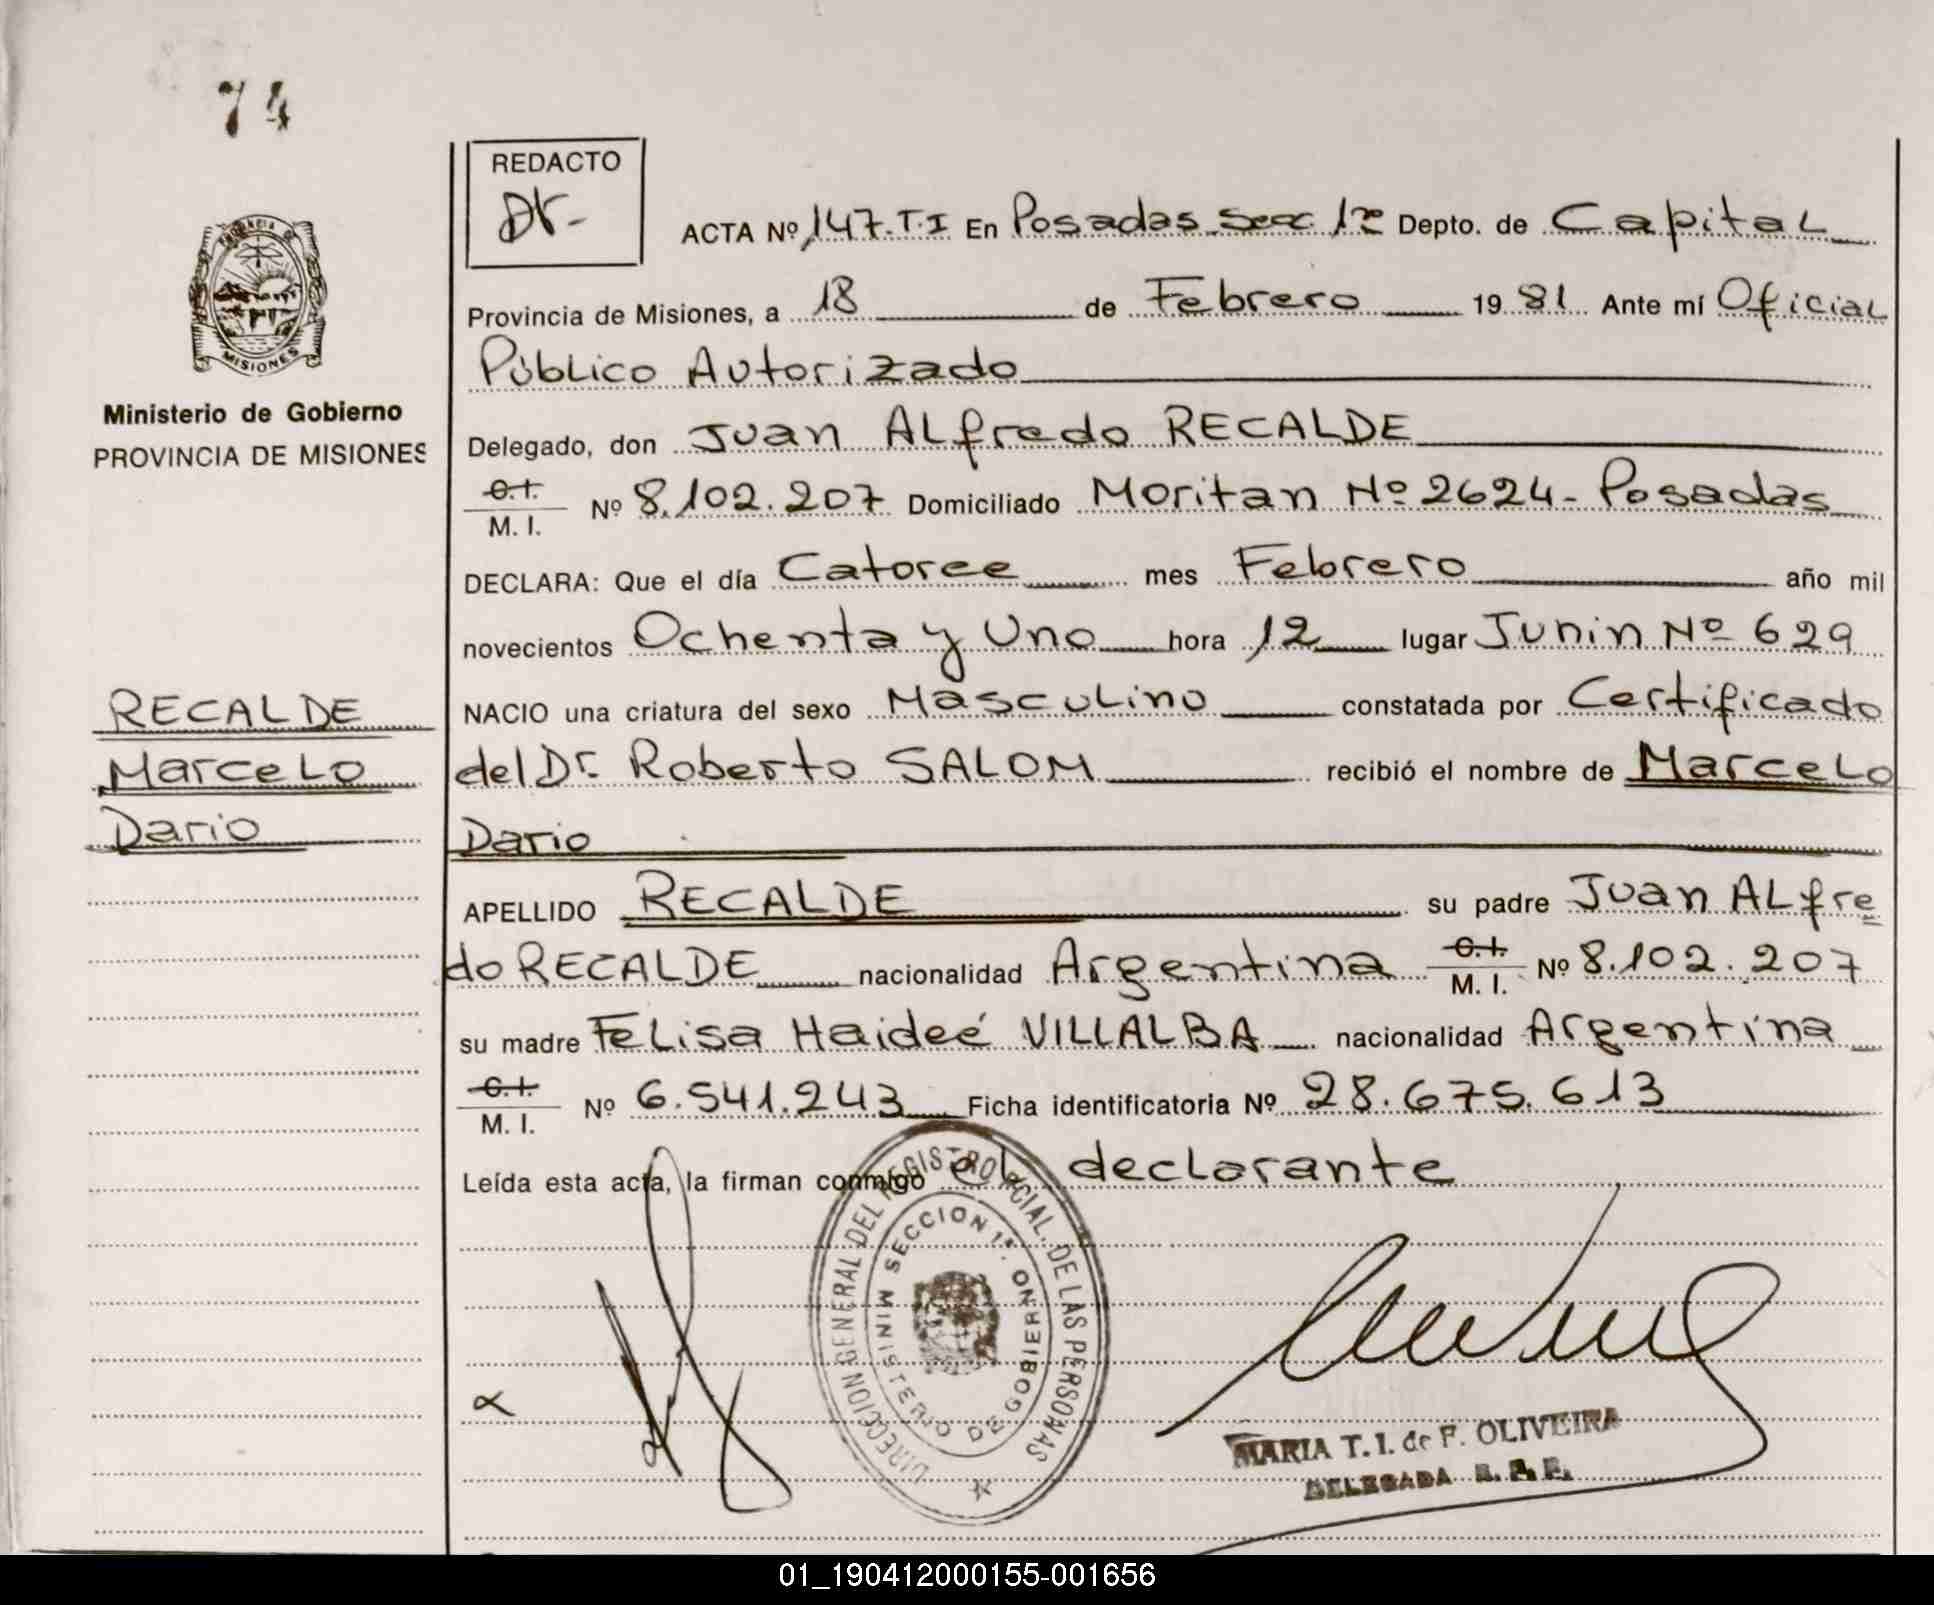 74
REDACTO
ACTA Nº 147-T.I En Posadas Secc. 1ra Depto. de Capital
Provincia de Misiones, a 18 de Febrero 1981 Ante mí Oficial
Público Autorizado
Delegado, don Juan Alfredo RECALDE
C.I.
M. I. Nº 8.102.207 Domiciliado Moritan Nº 2624- Posadas
DECLARA: Que el día Catorce mes Febrero año mil
novecientos Ochenta y Uno hora 12 lugar Junin Nº 629
NACIO una criatura del sexo Masculino constatada por Certificado
del Dr. Roberto SALOM recibió el nombre de Marcelo
Dario
APELLIDO RECALDE su padre Juan Alfre
do RECALDE nacionalidad Argentina C.I. M. I. Nº 8.102.207
su madre Felisa Haideé VILLALBA nacionalidad Argentina
C.I.
M. I. Nº 6.541.243 Ficha identificatoria Nº 28.675.613
Leída esta acta, la firman conmigo el declarante
PROVINCIA DE
MISIONES
Ministerio de Gobierno
PROVINCIA DE MISIONES
RECALDE
Marcelo
Dario
DIRECCION GENERAL DEL REGISTRO PCIAL. DE LAS PERSONAS
SECCION 1ª.
MINISTERIO DE GOBIERNO
MARIA T. I. de F. OLIVEIRA
DELEGADA
01_190412000155-001656